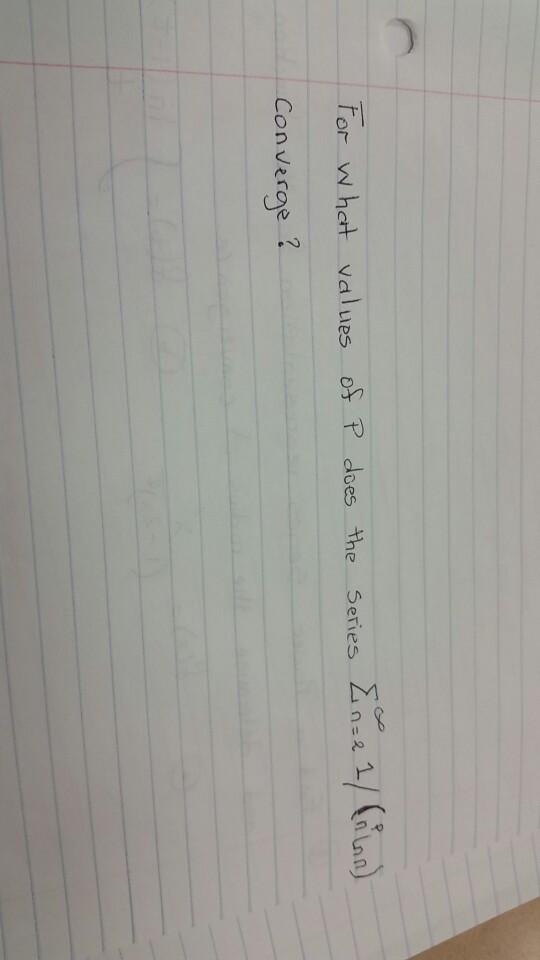 For what values of P does the series ∑ₙ₌₂^∞ 1/(n^p ln n)
Converge?